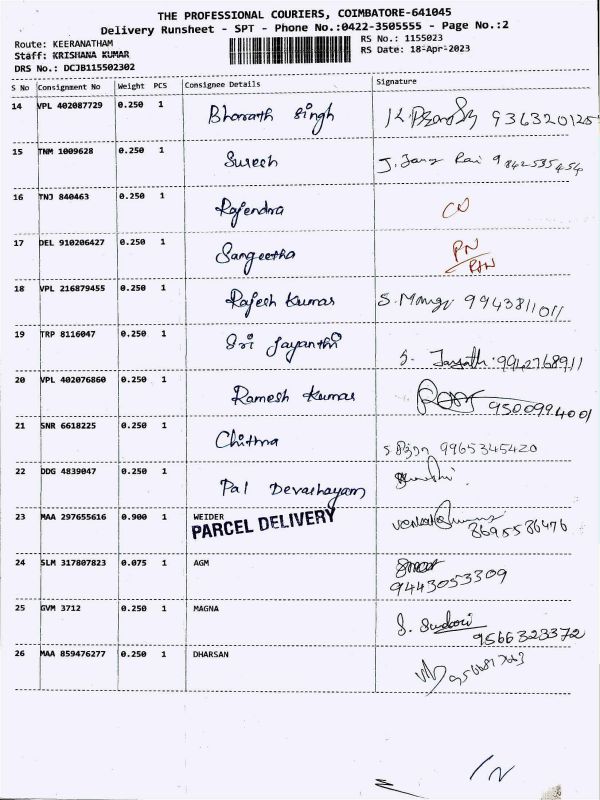 THE PROFESSIONAL COURIERS, COIMBATORE-641045
Delivery Runsheet - SPT - Phone No.:0422-3505555 - Page No.:2
Route: KEERANATHAM
RS No.: 1155023
Staff: KRISHANA KUMAR
RS Date: 18-Apr-2023
DRS No.: DCJB115502302
S No Consignment No Weight PCS Consignee Details Signature
14 VPL 402087729 0.250 1 Bharath Singh 936320125
15 TNM 1009628 0.250 1 Suresh 9842535454
16 TNJ 840463 0.250 1 Rajendra
17 DEL 910206427 0.250 1 Sangeetha PN
18 VPL 216879455 0.250 1 Rajesh Kumar 9943811011
19 TRP 8116047 0.250 1 Sri Jayanthi 9942768911
20 VPL 402076860 0.250 1 Ramesh Kumar 9500994001
21 SNR 6618225 0.250 1 Chitna 9965345420
22 DDG 4839047 0.250 1 Pal Devashayam
23 MAA 297655616 0.900 1 WEIDER 8695586476
PARCEL DELIVERY
24 SLM 317807823 0.075 1 AGM 9443053309
25 GVM 3712 0.250 1 MAGNA 9566323372
26 MAA 859476277 0.250 1 DHARSAN